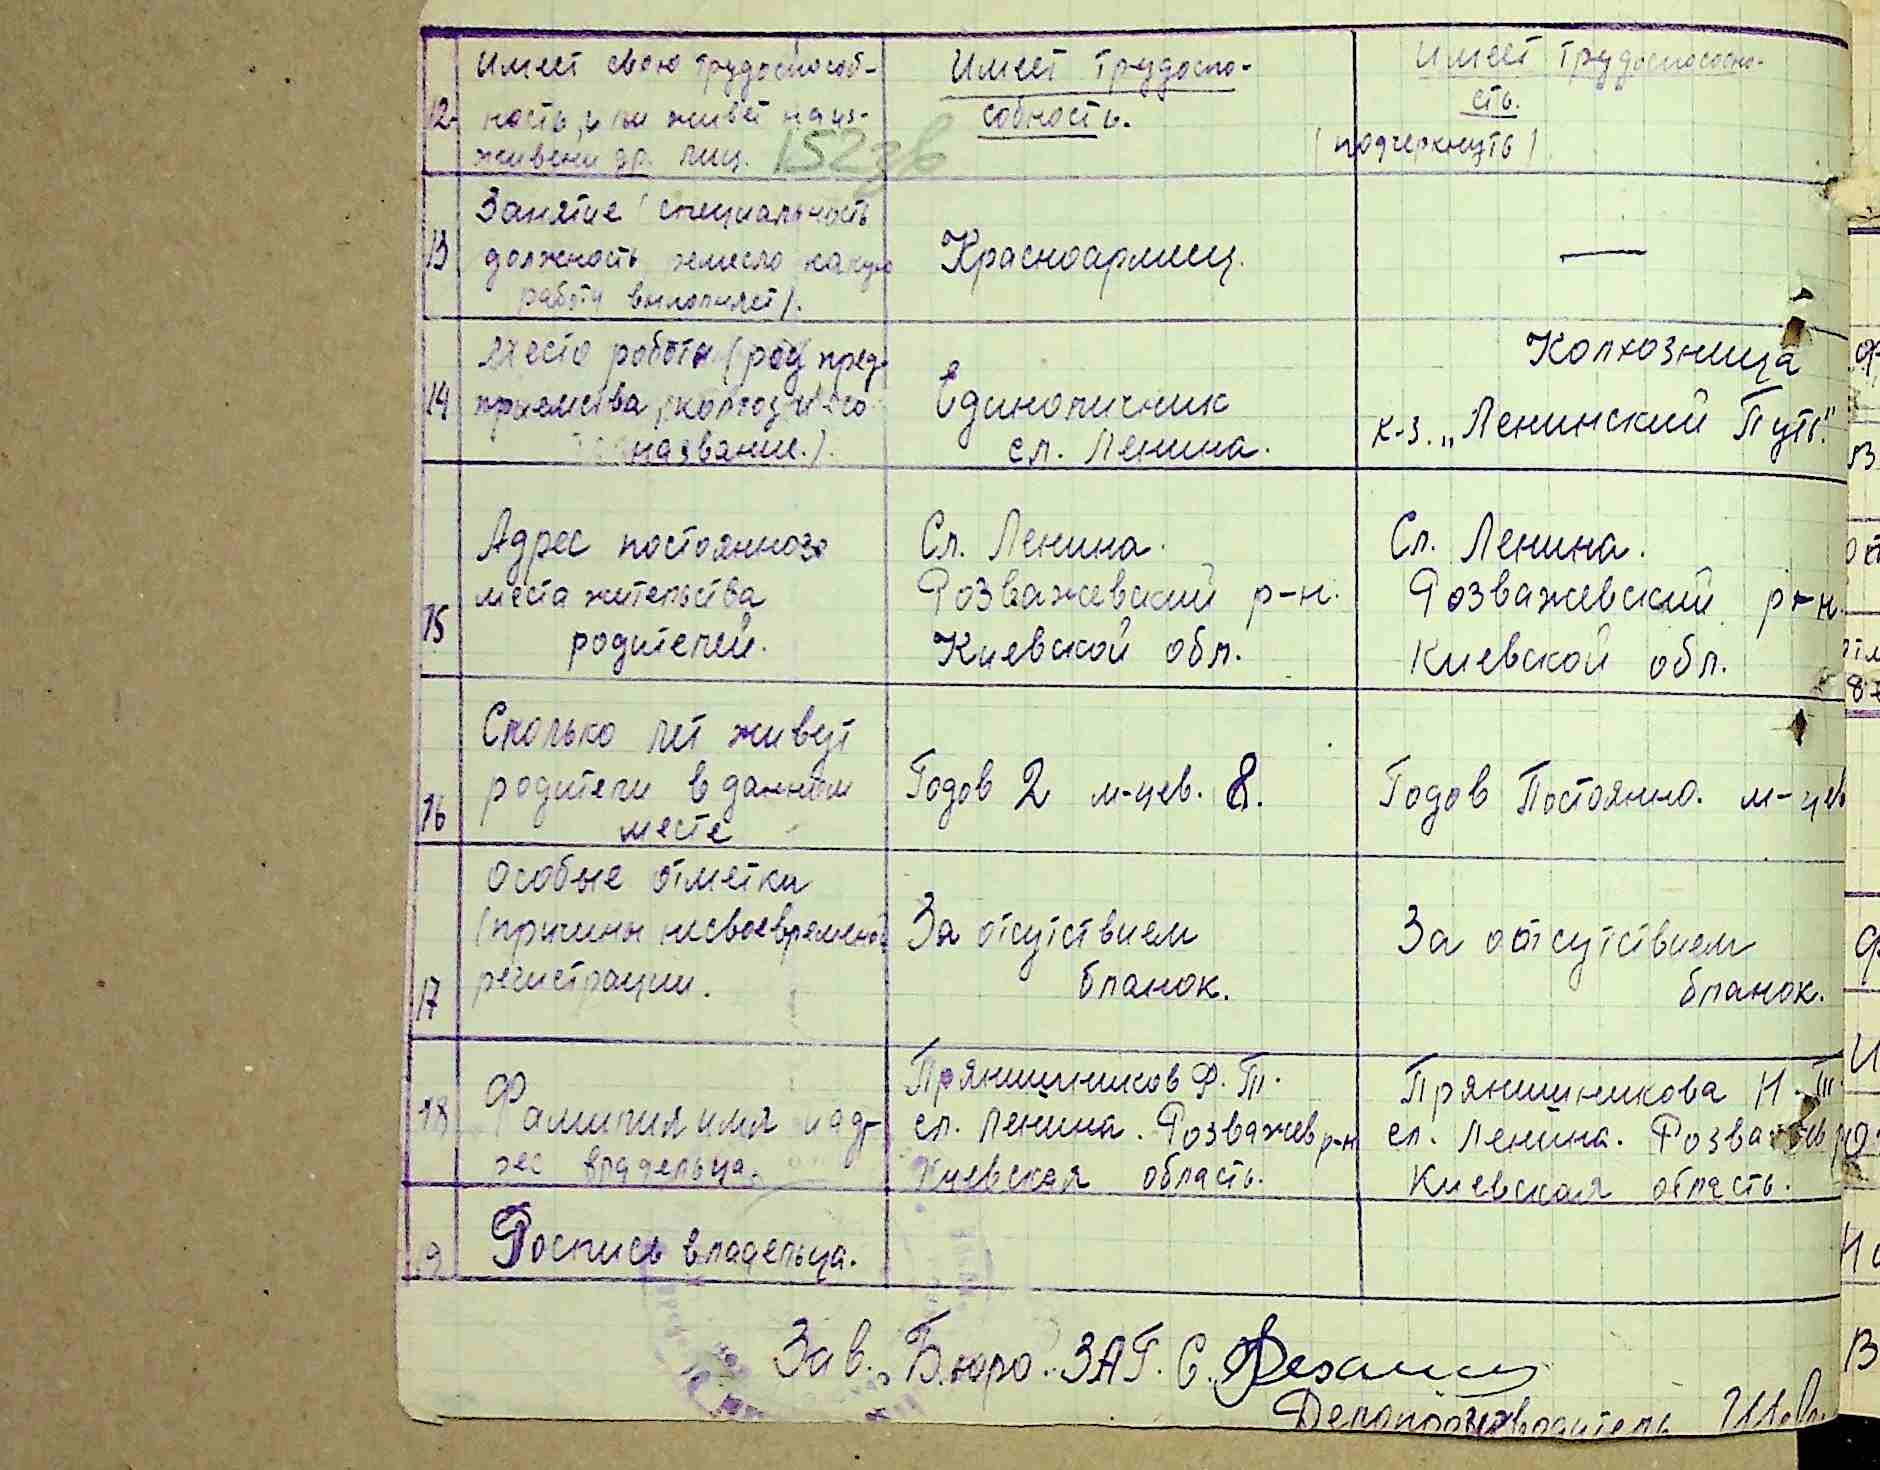 12
Имеет свою трудоспособ-
ность, или живет на из-
живени др. лиц.
152зв
Имеет трудоспо-
собность.
Имеет трудоспособно-
сть.
(подчеркнуть)
13
Занятие (специальность
должность ремесло какую
работу выполняет).
Красноармеец.
—
14
Место работы (род пред-
приемства, колхоз и его
название.).
Единоличник
сл. Ленина.
Колхозница
к-з. „Ленинский Путь."
15
Адрес постоянного
места жительства
родителей.
Сл. Ленина.
Розважевский р-н.
Киевской обл.
Сл. Ленина.
Розважевский р-н.
Киевской обл.
16
Сколько лет живут
родители в данном
месте
Годов 2 м-цев. 8.
Годов Постоянно. м-цев
17
Особые отметки
(причины несвоевременой
регистрации.
За отсутствием
бланок.
За отсутствием
бланок.
18
Фамилия имя и ад-
рес владельца.
Прянишников Ф. Т.
сл. Ленина. Розважев р-н
Киевская область.
Прянишникова Н. Т.
сл. Ленина. Розважев
Киевская область.
19
Роспись владельца.
Зав. Бюро. ЗАГ. С.
Делопроизводитель